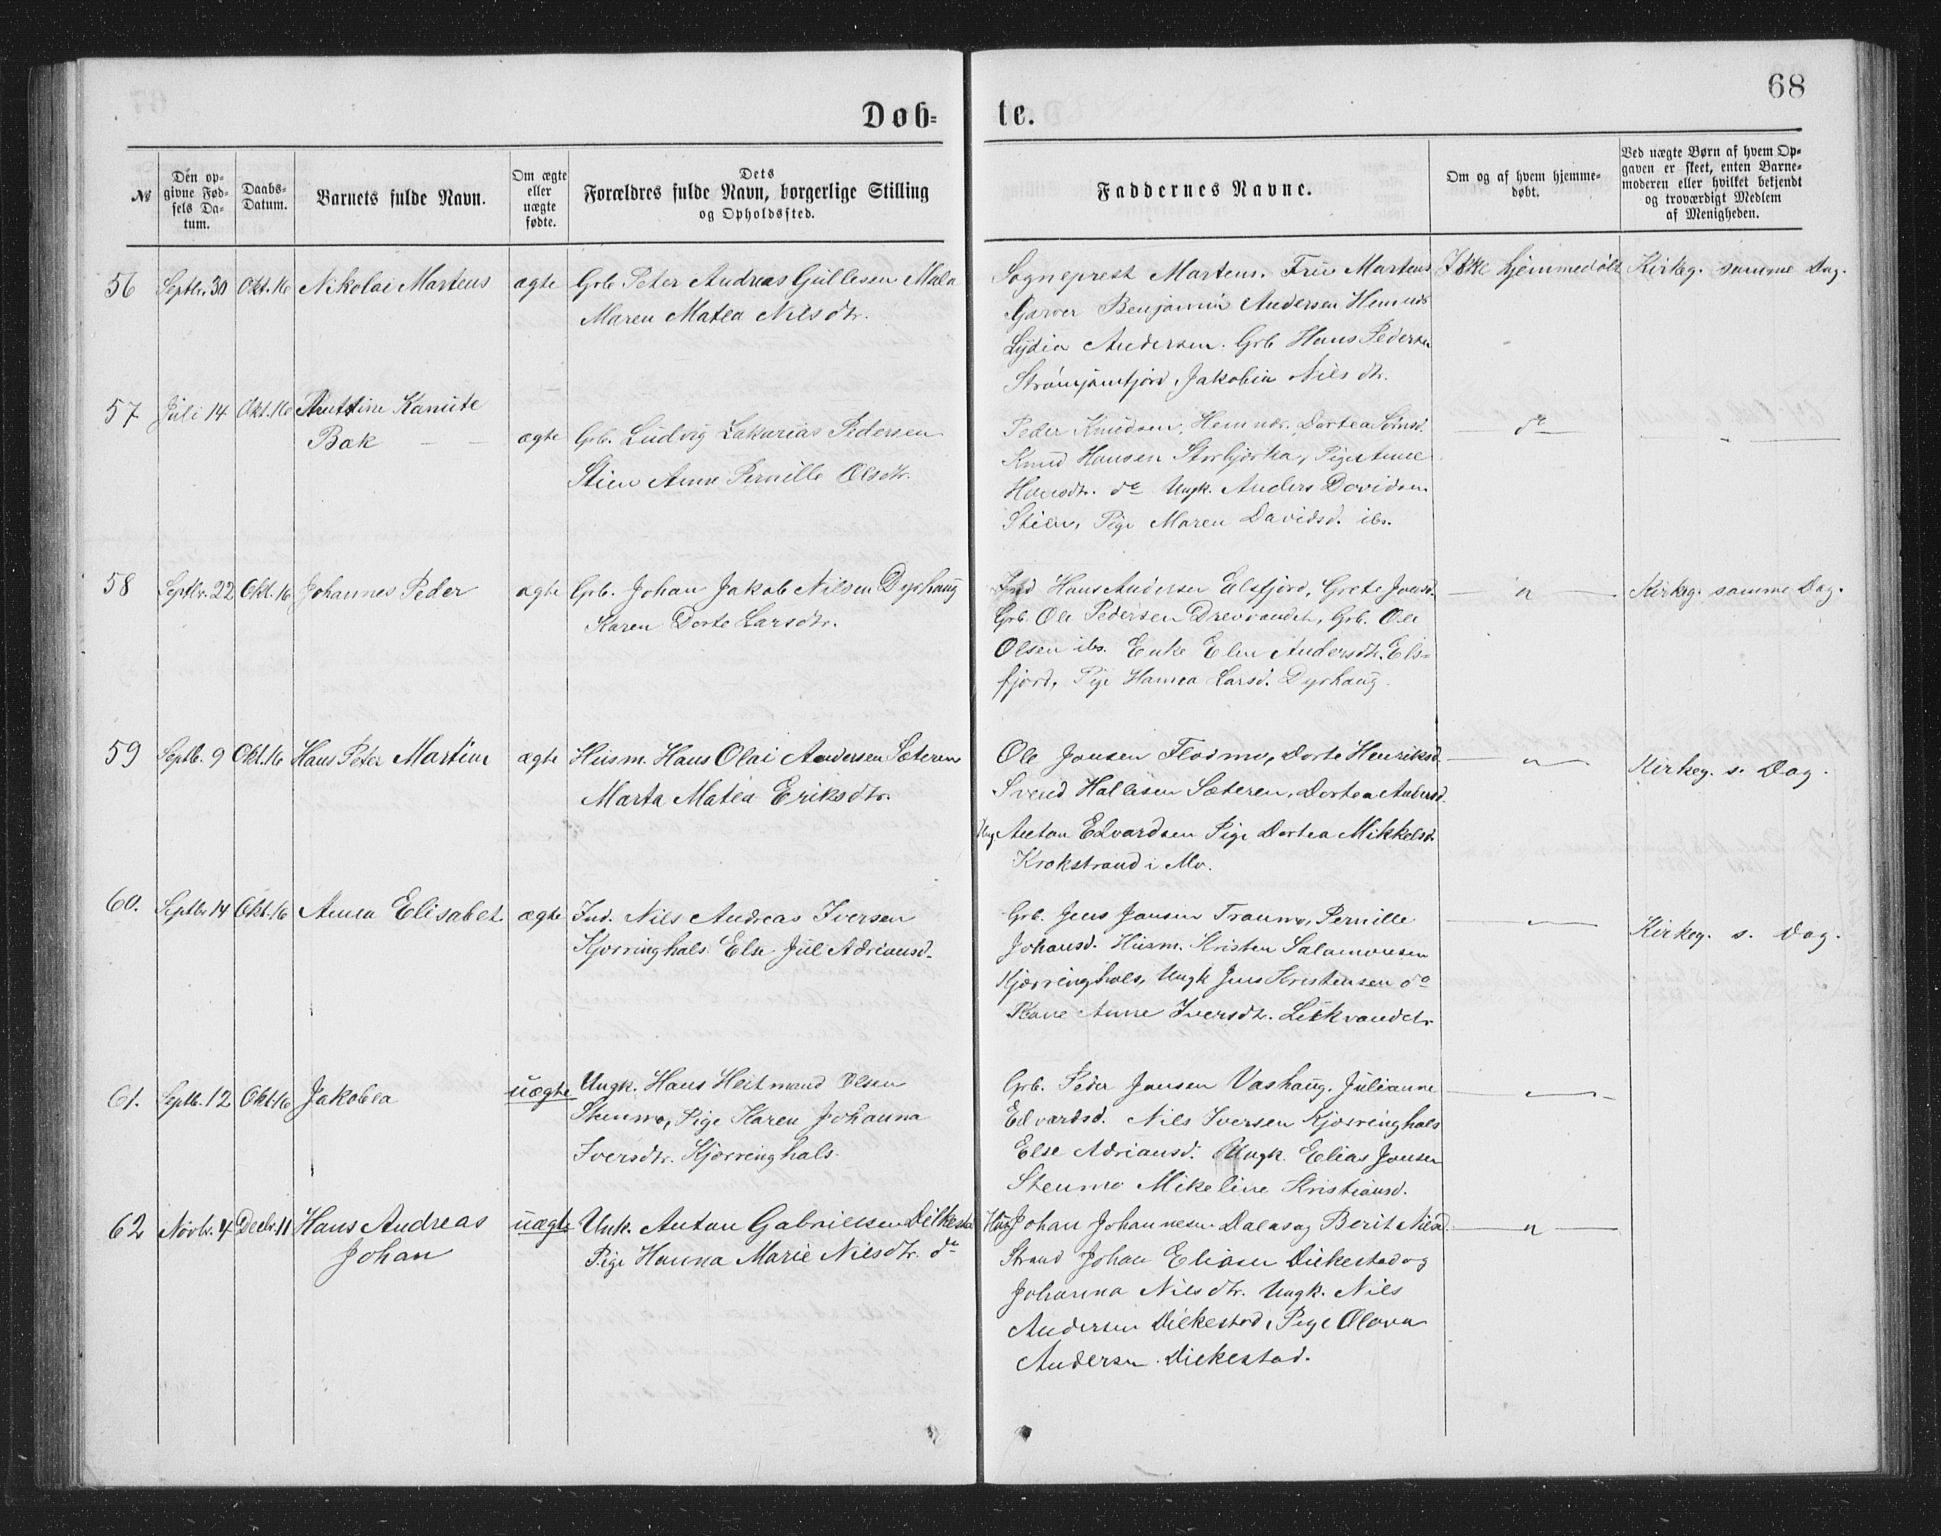 68
Døb- te.
№
Den opgivne Fødsels Datum.
Daabs-Datum.
Barnets fulde Navn.
Om ægte eller uægte fødte.
Dets Forældres fulde Navn, borgerlige Stilling og Opholdssted.
Faddernes Navne.
Om og af hvem hjemmedøbt.
Ved uægte Børn af hvem Opgaven er skeet, enten Barnemoderen eller hvilket bekjendt og troværdigt Medlem af Menigheden.
56 Septbr. 30 Okt. 16 Nikolai Martens ægte Grb. Peter Andreas Gullesen Mala
Maren Matea Nilsdtr.
Sogneprest Martens. Fru Martens
Garver Benjamin Andersen Hemnæs
Lydia Andersen. Grb Hans Pedersen
Jakobin Nilsdtr.
Ikke hjemmedøbt Kirkeg. samme Dag.
57 Juli 14 Okt. 16
Bæk ægte Grb. Ludvig Zakarias Pedersen
Stien Anne Pernille Olsdtr.
Peder Knudsen, Hemnæs.
Knud Hansen Storbjørka, Pige Anne
Hansdtr. do Ungk. Anders Davidsen
Stien, Pige Maren Davidsd. ibs.
do
58 Septbr. 22 Okt. 16 Johannes Peder ægte Grb. Johan Jakob Nilsen Dyrhaug
Karen Dorte Larsdtr.
Ind Hans Andersen Elsfjord, Grete
Grb. Ole Pedersen Drevvandet, Grb. Ole
Olsen ibs. Enke Elen Andersdtr. Els=
fjord, Pige Hanna Larsd. Dyrhaug.
" Kirkeg. samme Dag.
59 Septb. 9 Okt. 16 Hans Peter Martin ægte Husm. Hans Olai Andersen Sæteren
Marta Matea Eriksdtr.
Ole Jonsen Flodmo, Dorte Henriksd.
Svend Hallesen Sæteren, Dortea Andersd.
Ung. Anton Edvardsen Pige Dortea Mikkelsd.
Krokstrand i Mo.
" Kirkeg. s. Dag.
60. Septbr 14 Okt. 16 Anna Elisabet ægte Ind. Nils Andreas Iversen
Kjerringhals. Else Jul Adriansd.
Grb. Jens Jansen Traumo, Pernille
Johansd. Husm. Kristen Salamonsen
Kjerringhals, Ungk Jens Kristensen do
Kone Anne Iversdtr.
" Kirkeg. s. Dag.
61. Septb. 12 Okt. 16 Jakobea uægte Ungk. Hans Heitmand Olsen
Stenmo, Pige Karen Johanna
Iversdtr. Kjerringhals.
Grb. Peder Jansen Vashaug. Julianne
Edvardsd. Nils Iversen Kjerringhals
Else Adriansd. Ungk. Elias Jonsen
Stenmo Mikeline Kristiansd.
"
62 Novbr. 4 Decbr. 11 Hans Andreas
Johan uægte Unk. Anton Gabrielsen Dilkestad
Pige Hanna Marie Nilsdtr. do
Johan Johannesen Dalas og Berit Nilsd.
Strand Johan Eliasen Dilkestad og
Johanna Nilsdtr. Ungk. Nils
Andersen Dilkestad, Pige Olava
Andersen Dilkestad.
"